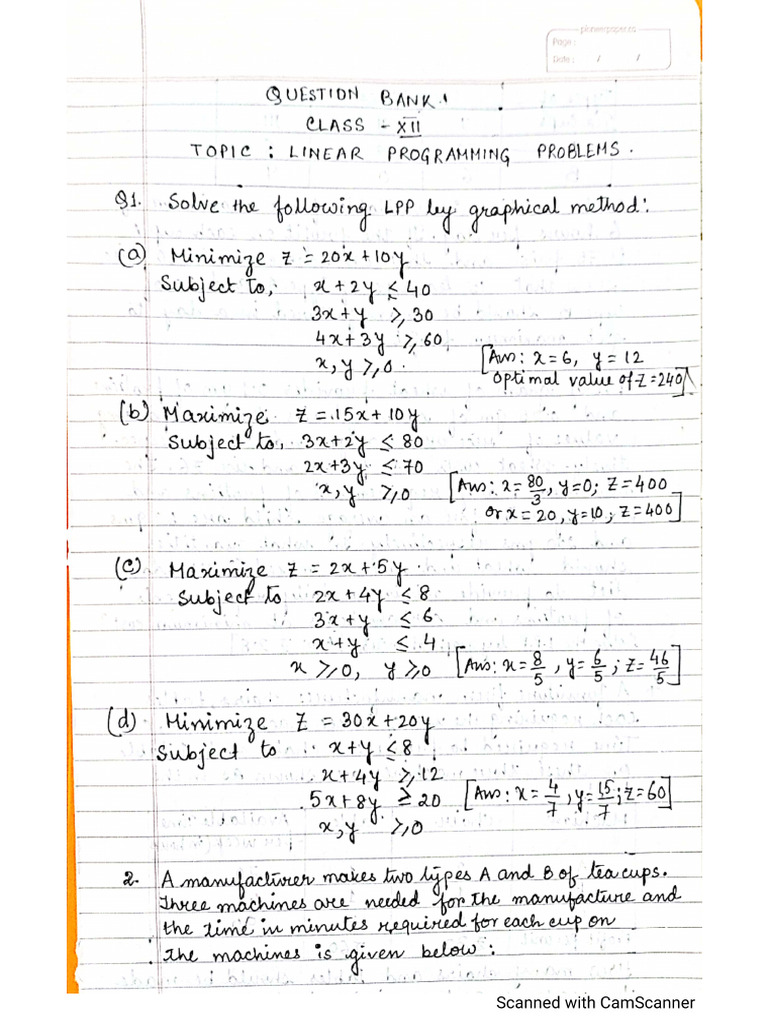 pioneerpaper.co
Page :
Date : / /
QUESTION BANK.
CLASS - XII
TOPIC : LINEAR PROGRAMMING PROBLEMS.
Q1. Solve the following LPP by graphical method:
(a) Minimize z = 20x+10y
Subject to, x+2y ≤ 40
3x+y ≥ 30
4x+3y ≥ 60
x, y ≥ 0.
[Ans: x=6, y=12
Optimal value of z=240]
(b) Maximize z = 15x+10y
Subject to, 3x+2y ≤ 80
2x+3y ≤ 70
x, y ≥ 0
[Ans: x=80/3, y=0; Z=400
or x=20, y=10; Z=400]
(c) Maximize z = 2x+5y
Subject to 2x+4y ≤ 8
3x+y ≤ 6
x+y ≤ 4
x ≥ 0, y ≥ 0 [Ans: x=8/5, y=6/5; z=46/5]
(d) Minimize Z = 30x+20y
Subject to x+y ≤ 8
x+4y ≥ 12
5x+8y ≥ 20 [Ans: x=4/7, y=15/7; z=60]
x, y ≥ 0
2. A manufacturer makes two types A and B of tea cups.
Three machines are needed for the manufacture and
the time in minutes required for each cup on
the machines is given below:
Scanned with CamScanner